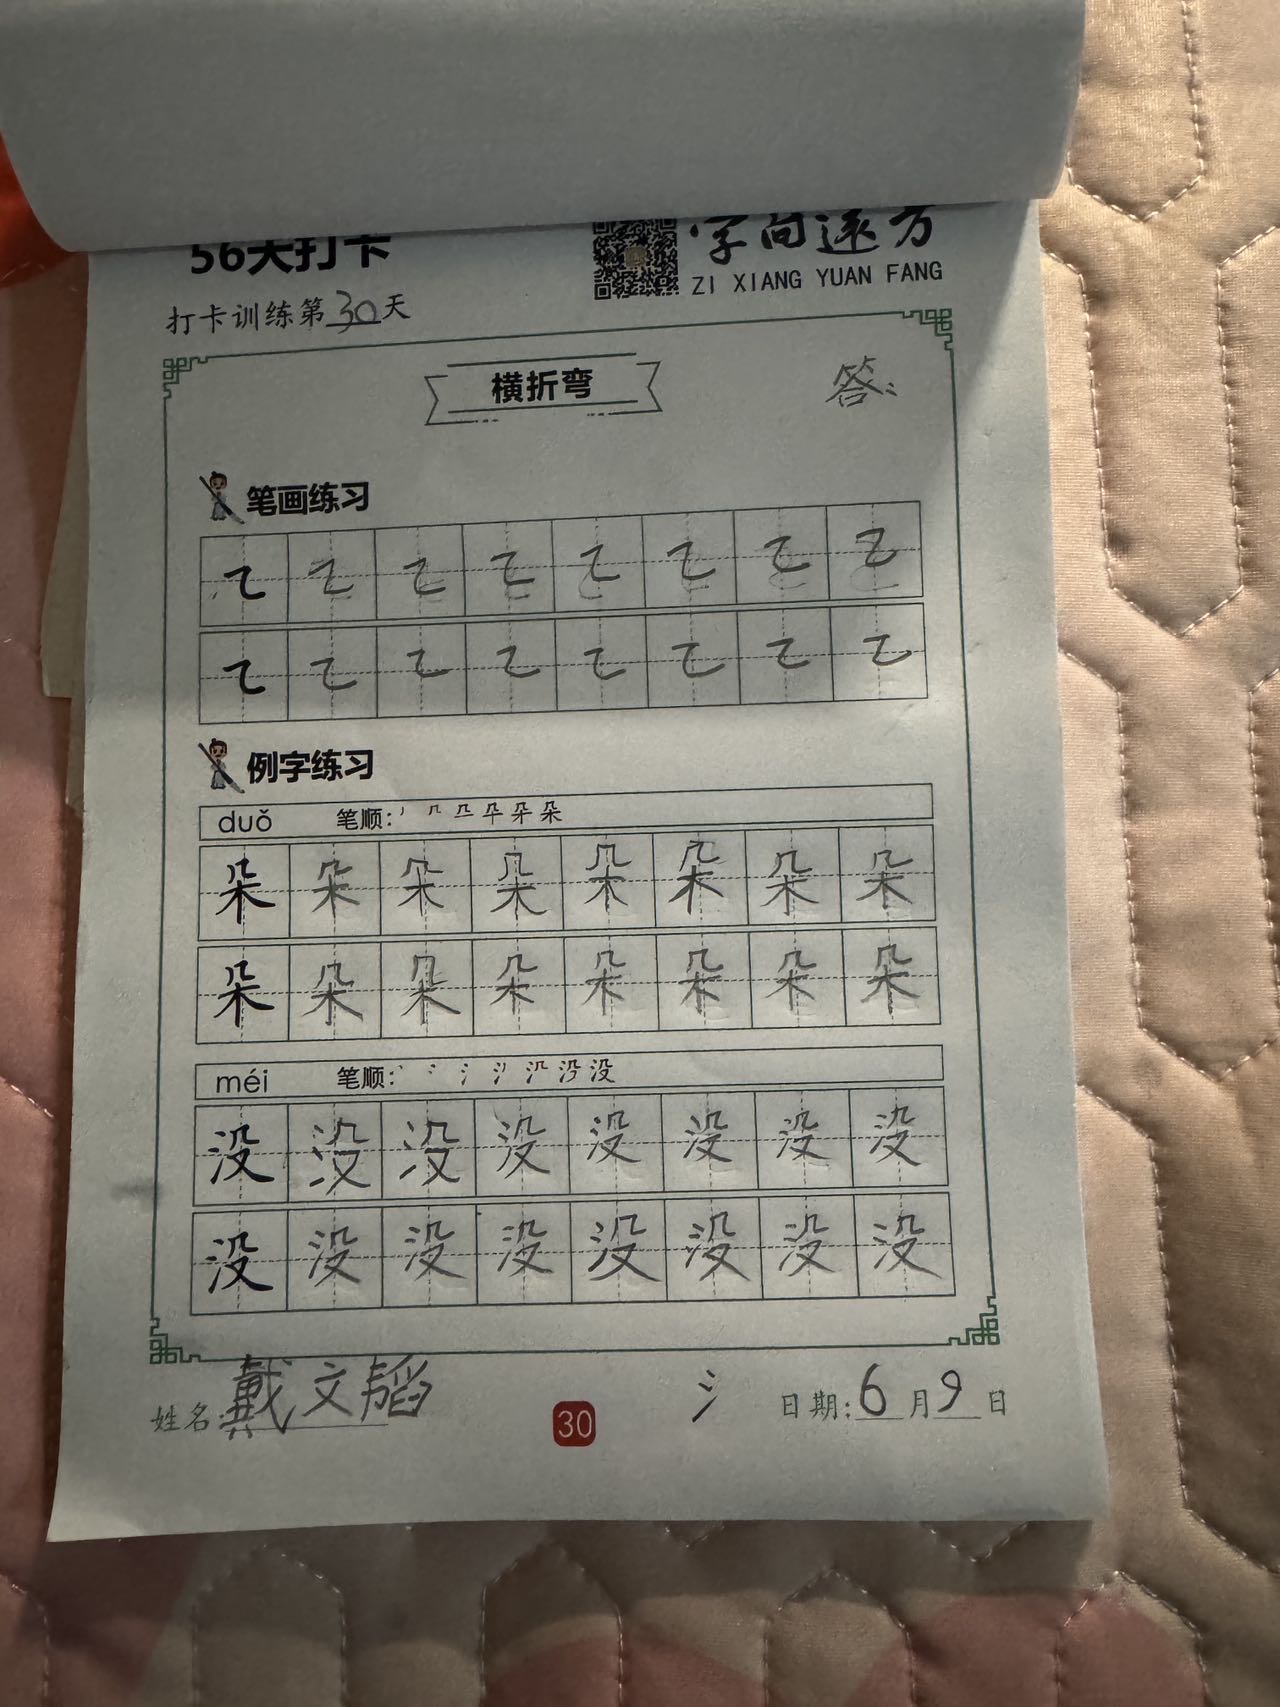 56天打卡
字向远方
ZI XIANG YUAN FANG
打卡训练第30天
横折弯
答:
笔画练习
㇍ ㇍ ㇍ ㇍ ㇍ ㇍ ㇍ ㇍
㇍ ㇍ ㇍ ㇍ ㇍ ㇍ ㇍ ㇍
例字练习
duǒ 笔顺:
朵 朵 朵 朵 朵 朵 朵 朵
朵 朵 朵 朵 朵 朵 朵 朵
méi 笔顺:
没 没 没 没 没 没 没 没
没 没 没 没 没 没 没 没
姓名:戴文韬
30
氵
日期:6月9日